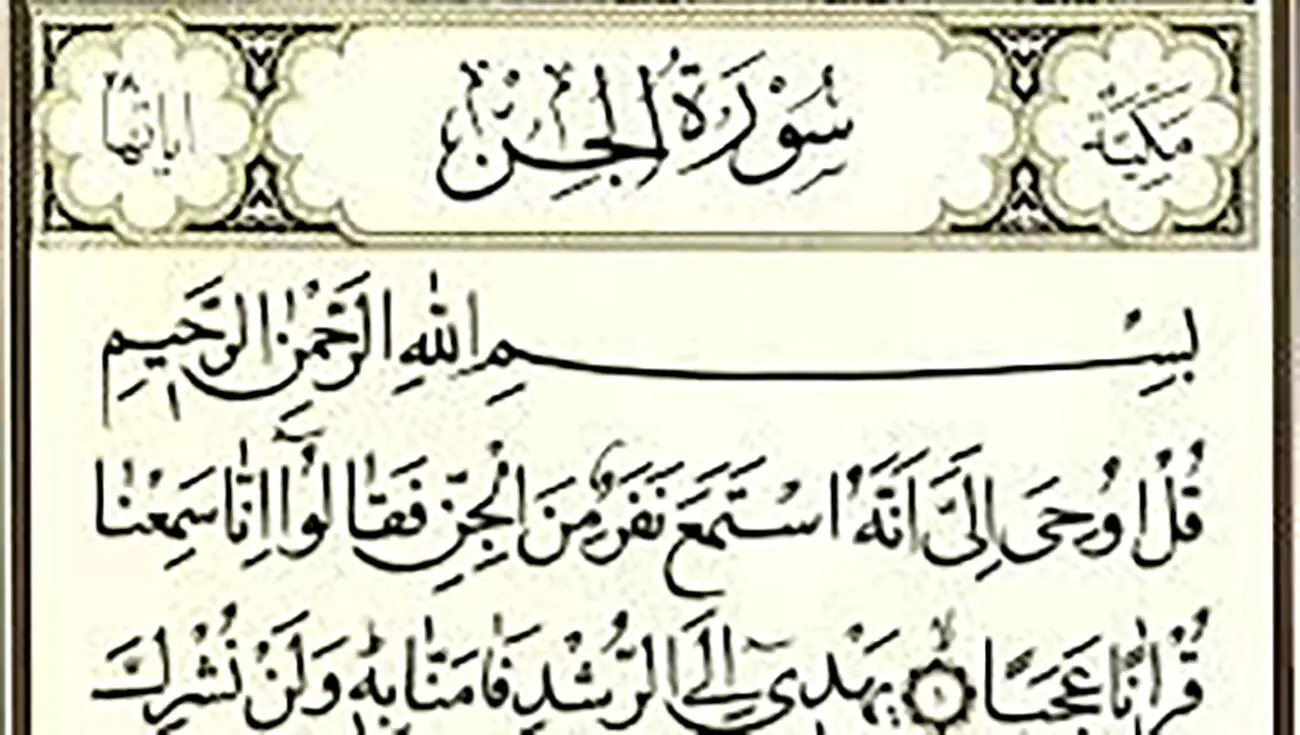 مَكِّيَّة سُوْرَةُ الْجِنّ اياتها ٢٨
بِسْمِ اللهِ الرَّحْمٰنِ الرَّحِيْمِ
قُلْ اُوْحِىَ اِلَىَّ اَنَّهُ اسْتَمَعَ نَفَرٌ مِنَ الْجِنِّ فَقَالُوْٓا اِنَّا سَمِعْنَا
قُرْاٰنًا عَجَبًا ١ يَهْدِىٓ اِلَى الرُّشْدِ فَاٰمَنَّا بِهٖ وَلَنْ نُشْرِكَ